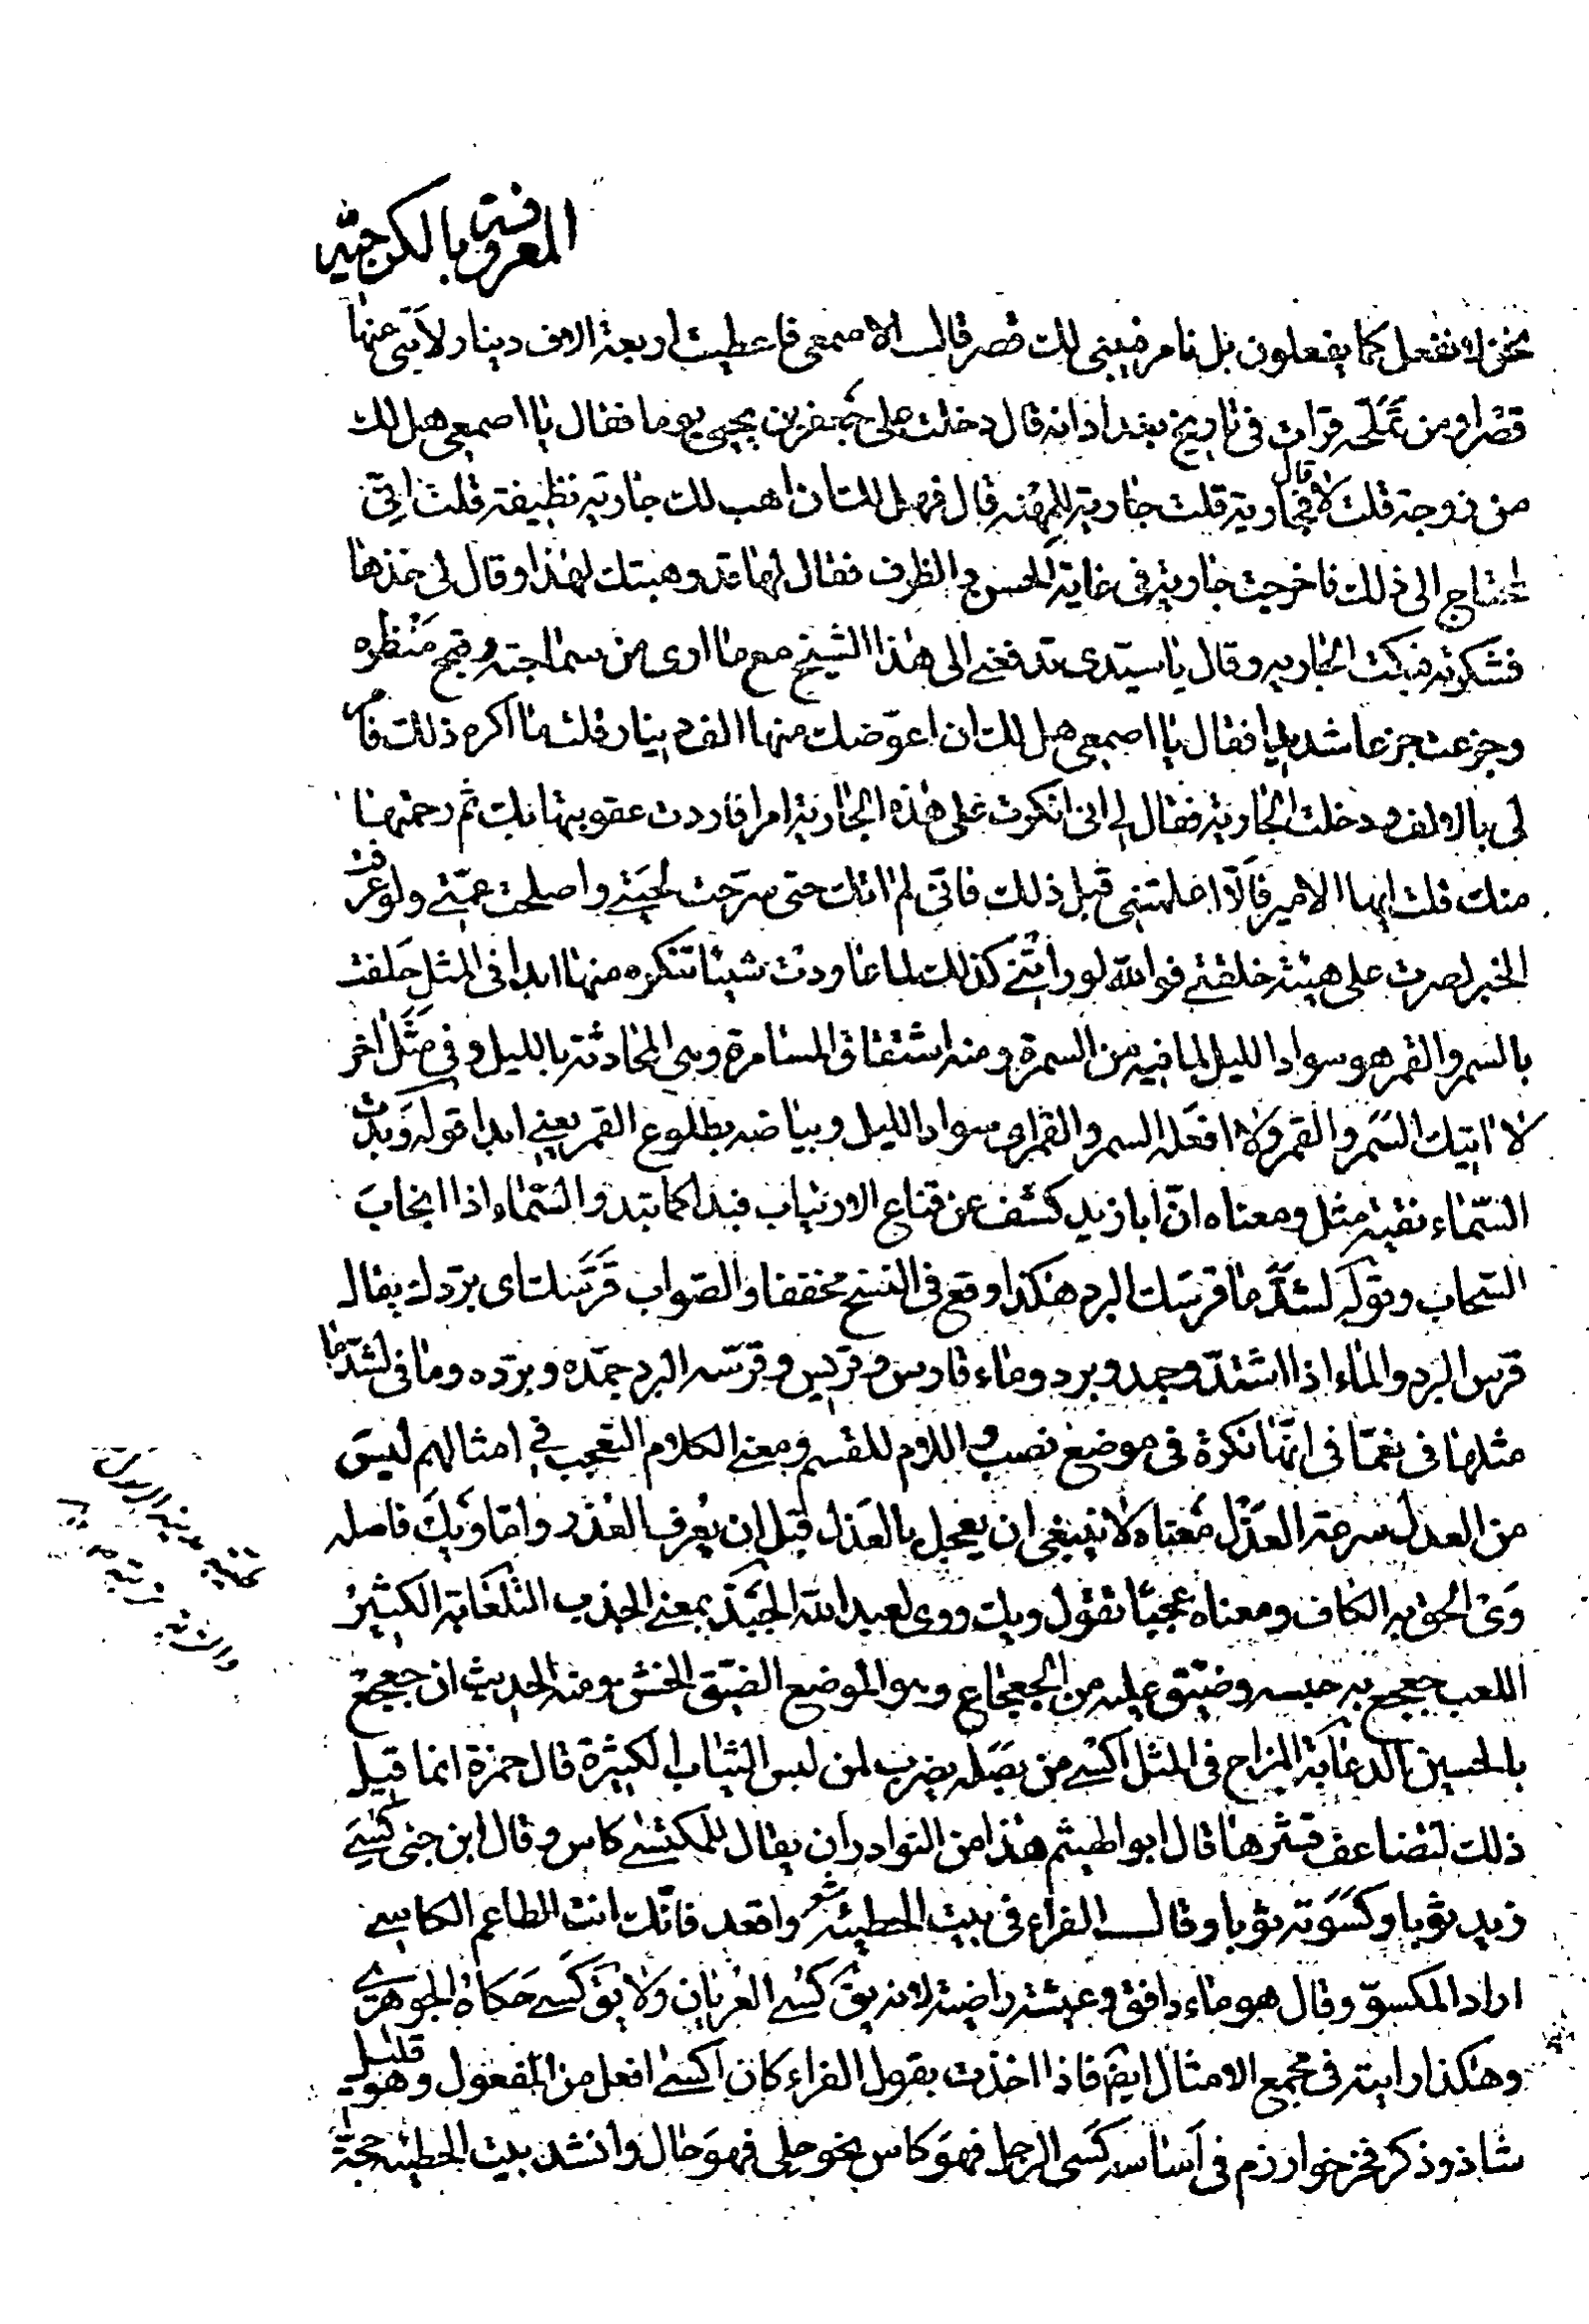 المعروفة بالكرجية
نحن لا نفعل كما يفعلون بل نامر فيبنى لك قصر قال الاصمعى فاعطيت اربعة الاف دينار لابنى منها
قصرا ومن تملحه قرات فى تاريخ بغداد انه قال دخلت على جعفر بن يحيى يوما فقال يا اصمعى هل لك
من زوجة قلت لا قال فجارية قلت جارية للمهنه قال فهل لك ان اهب لك جارية نظيفة قلت انى
لمحتاج الى ذلك فاخرجت جارية فى غاية الحسن والظرف فقال لها قد وهبتك لهذا وقال لى خذها
فشكرته فبكت الجارية وقال يا سيدى تدفعنى الى هذا الشيخ مع ما ارى من سماجته وقبح منظره
وجزعت جزعا شديدا فقال يا اصمعى هل لك ان اعوضك منها الف دينار قلت ما اكره ذلك فامر
لى بالالف ودخلت الجارية فقال لى انى انكرت على هذه الجارية امرا فاردت عقوبتها بك ثم رحمتها
منك قلت ايها الامير فالا اعلمتنى قبل ذلك فانى لم اتك حتى سرحت لحيتى واصلحت عمتى ولو عرفت
الخبر لصرت على هيئة خلقتى فوالله لو راتنى كذلك لما عاودت شيئا تنكره منها ابدا فى المثل حلفت
بالسمر والقمر هو سواد الليل لما فيه من السمرة ومنه اشتقاق المسامرة وهى المحادثة بالليل وفى مثل اخر
لا اتيك السمر والقمر ولا افعله السمر والقمر اى سواد الليل وبياضه بطلوع القمر يعنى ابدا قوله وبدت
السماء نقية مثل ومعناه ان ابا زيد كشف عن قناع الارتياب فبدا كما تبدو السماء اذا انجاب
السحاب وقوله لشد ما قرسك البرد هكذا وقع فى النسخ مخففا والصواب قرسك اى بردك يقال
قرس البرد والماء اذا اشتد وجمد وبرد وماء قارس وقريس وقرسه البرد جمده وبرده وما فى لشد ما
مثلها فى نعما فى انها نكرة فى موضع نصب واللام للقسم ومعنى الكلام التعجب فى امثالهم ليس
من العدل سرعة العذل معناه لا ينبغى ان يعجل بالعذل قبل ان يعرف العذر واما ويك فاصله
وى الحق به الكاف ومعناه عجبا تقول ويك ووى لعبد الله الجبذ بمعنى الجذب التلعابة الكثير
اللعب جعجع به حبسه وضيق عليه من الجعجاع وهو الموضع الضيق الخشن ومنه الحديث ان جعجع
بالحسين الدعابة المزاح فى المثل اكسى من بصله يضرب لمن لبس الثياب الكثيرة قال حمزة انما قيل
ذلك لتضاعف قشرها قال ابو الهيثم هذا من النوادر ان يقال للمكتسى كاس وقال ابن جنى كسى
زيد ثوبا وكسوته ثوبا وقال الفراء فى بيت الحطيئة شعر واقعد فانك انت الطاعم الكاسى
اراد المكسو وقال هو ماء دافق وعيشة راضية لانه يق كسى العريان ولا يق كسى حكاه الجوهرى
وهكذا رايته فى مجمع الامثال ايضا فاذا اخذت بقول الفراء كان اكسى افعل من المفعول وهو قليل
شاذ وذكر فخر خوارزم فى اساسه كسى الرجل فهو كاس نحو حلى فهو حال وانشد بيت الحطيئة حجة